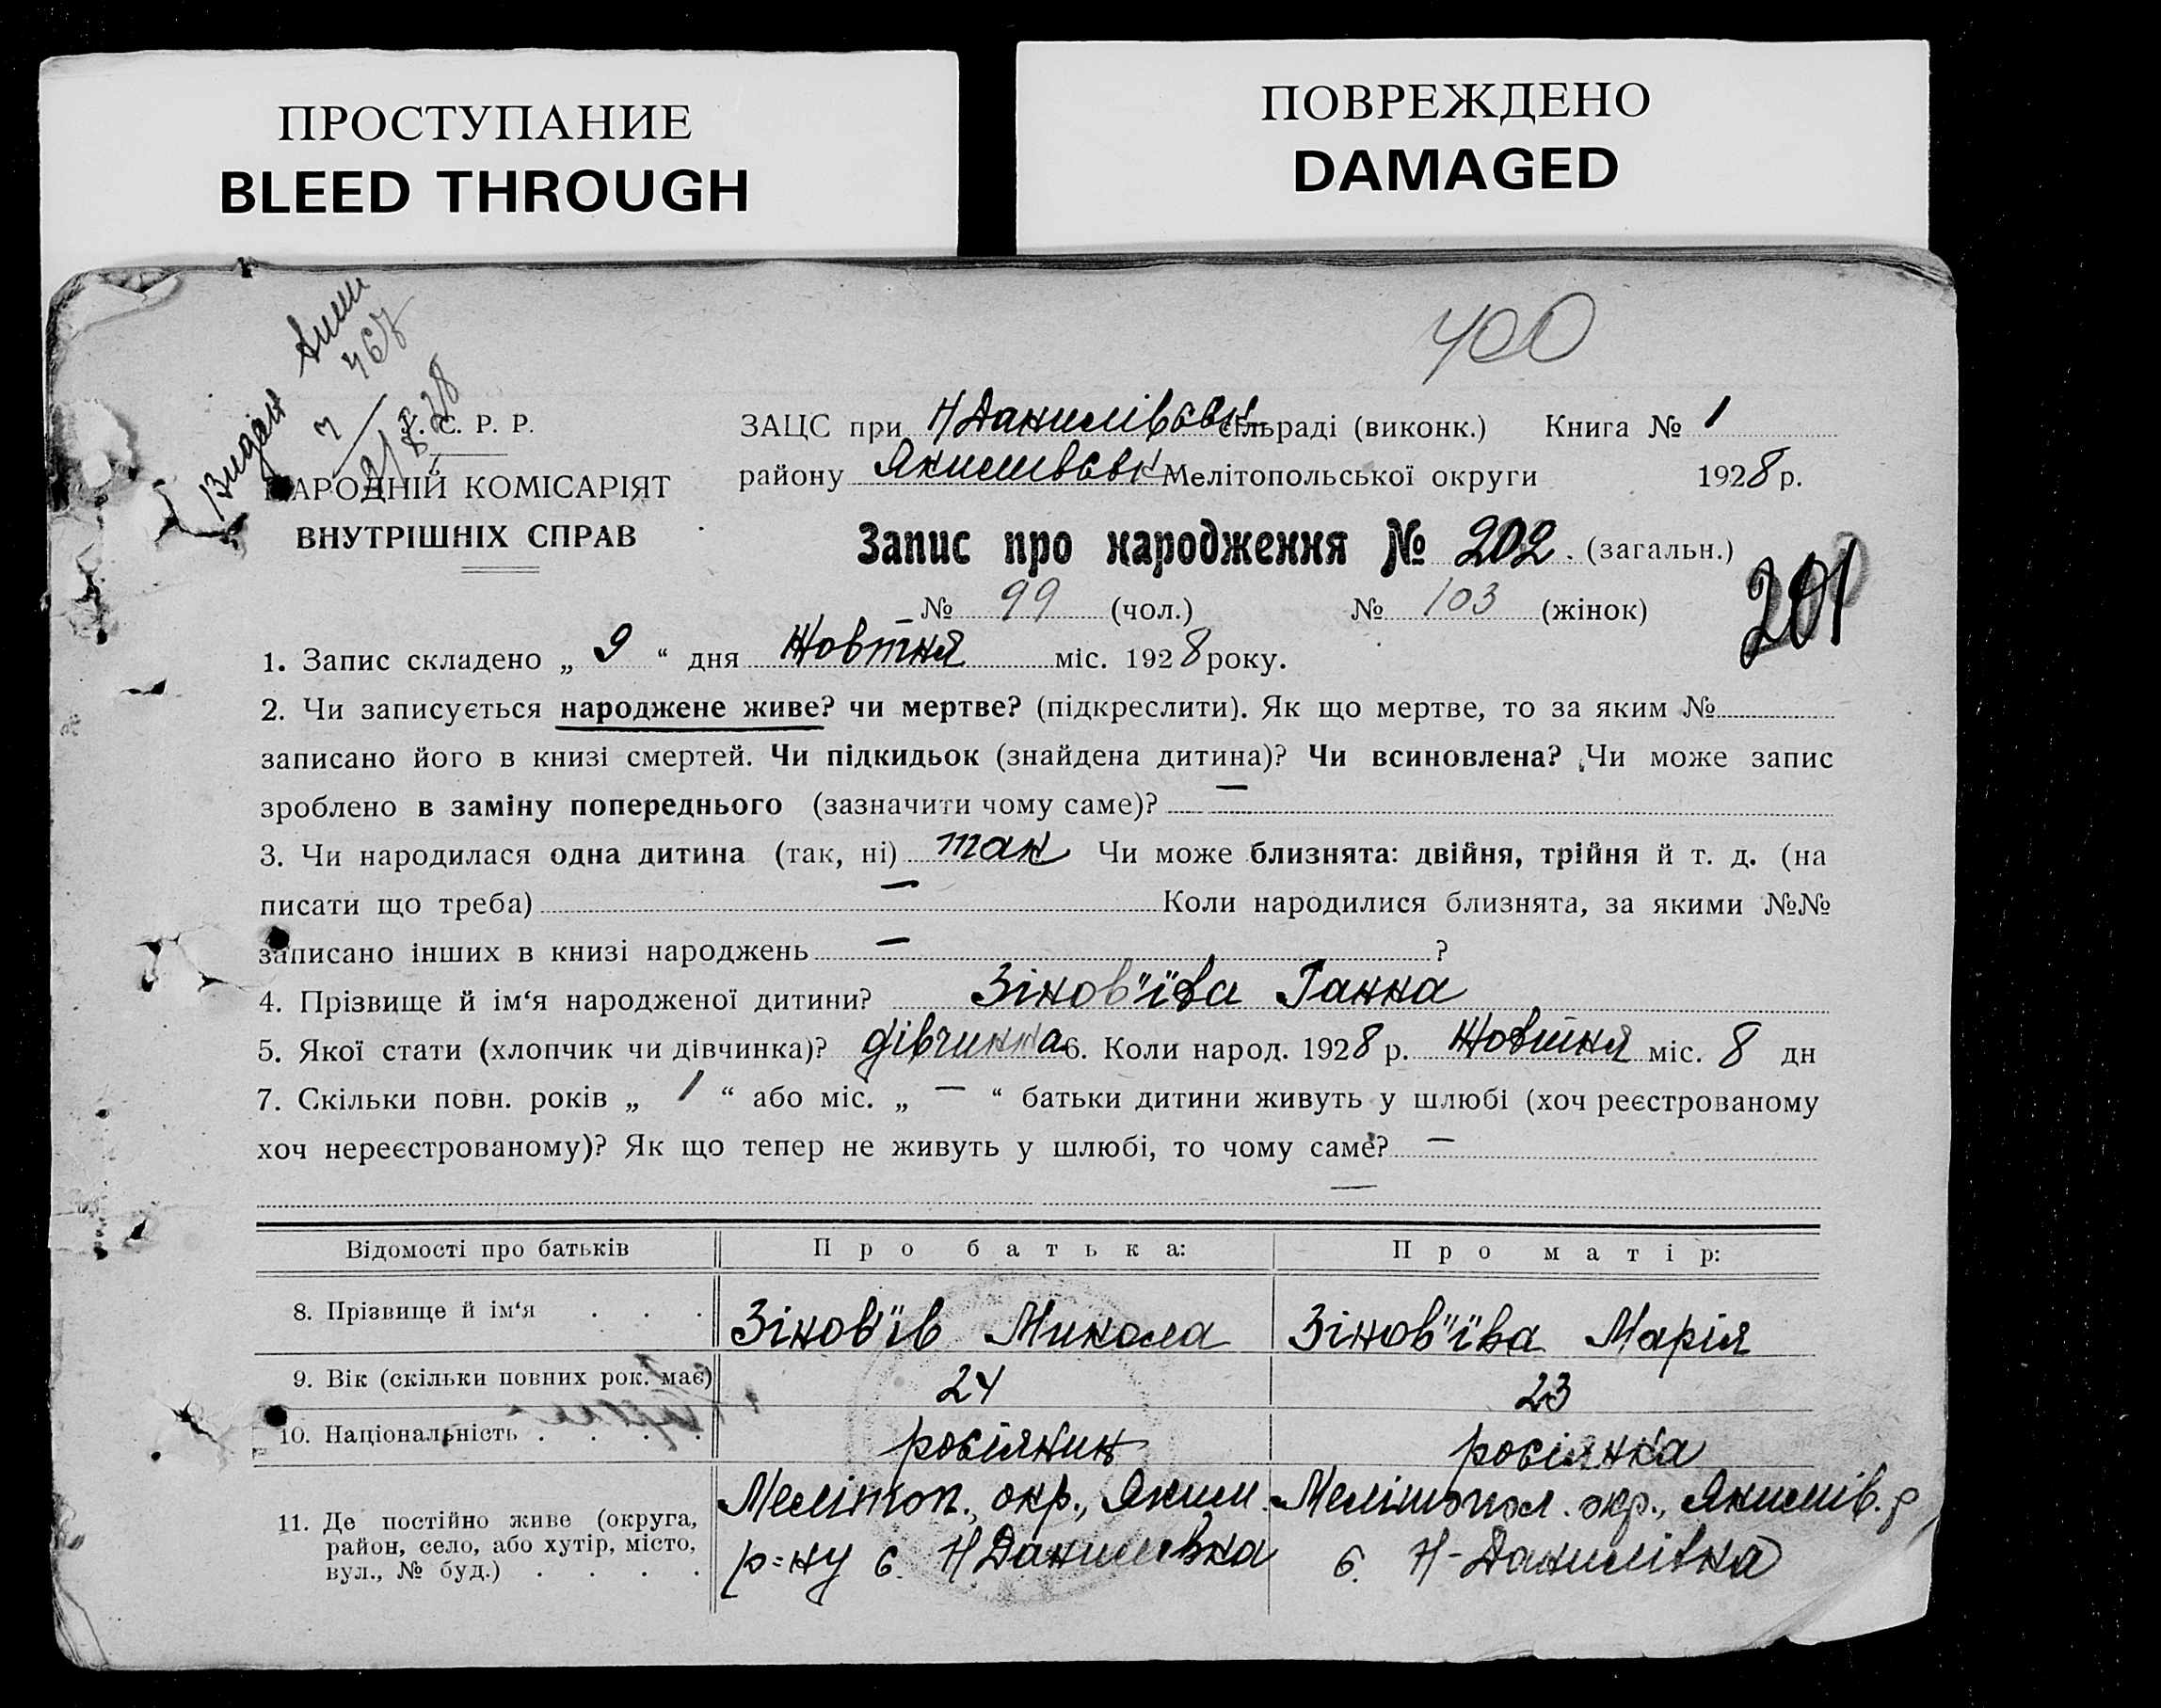 ПРОСТУПАНИЕ
BLEED THROUGH
ПОВРЕЖДЕНО
DAMAGED
400
Видан
У. С. Р. Р.
НАРОДНІЙ КОМІСАРІЯТ
ВНУТРІШНІХ СПРАВ
ЗАЦС при Н Данилівськ сільраді (виконк.) Книга № 1
району Якимівськ Мелітопольської округи 1928 р.
Запис про народження № 202. (загальн.)
201
№ 99 (чол.) № 103 (жінок)
1. Запис складено „ 9 “ дня Жовтня міс. 1928 року.
2. Чи записується народжене живе? чи мертве? (підкреслити). Як що мертве, то за яким №
записано його в книзі смертей. Чи підкидьок (знайдена дитина)? Чи всиновлена? Чи може запис
зроблено в заміну попереднього (зазначити чому саме)? —
3. Чи народилася одна дитина (так, ні) так Чи може близнята: двійня, трійня й т. д. (на
писати що треба) — Коли народилися близнята, за якими №№
записано інших в книзі народжень — ?
4. Прізвище й ім‘я народженої дитини? Зінов"їва Ганна
5. Якої стати (хлопчик чи дівчинка)? дівчинка 6. Коли народ. 1928 р. Жовтня міс. 8 дн
7. Скільки повн. років „ 1 “ або міс. „ — “ батьки дитини живуть у шлюбі (хоч реєстрованому
хоч нереєстрованому)? Як що тепер не живуть у шлюбі, то чому саме? —
—
Відомості про батьків Про батька: Про матір:
8. Прізвище й ім‘я . . . Зінов"їв Микола Зінов"їва Марія
9. Вік (скільки повних рок. має) 24 23
10. Національність . . . . росіянин росіянка
11. Де постійно живе (округа, район, село, або хутір, місто, вул., № буд.) . . . .
Мелітоп. окр., Яким.
р=ну с. Н Данилівка
Мелітопол. окр., Якимів. р
с. Н-Данилівка